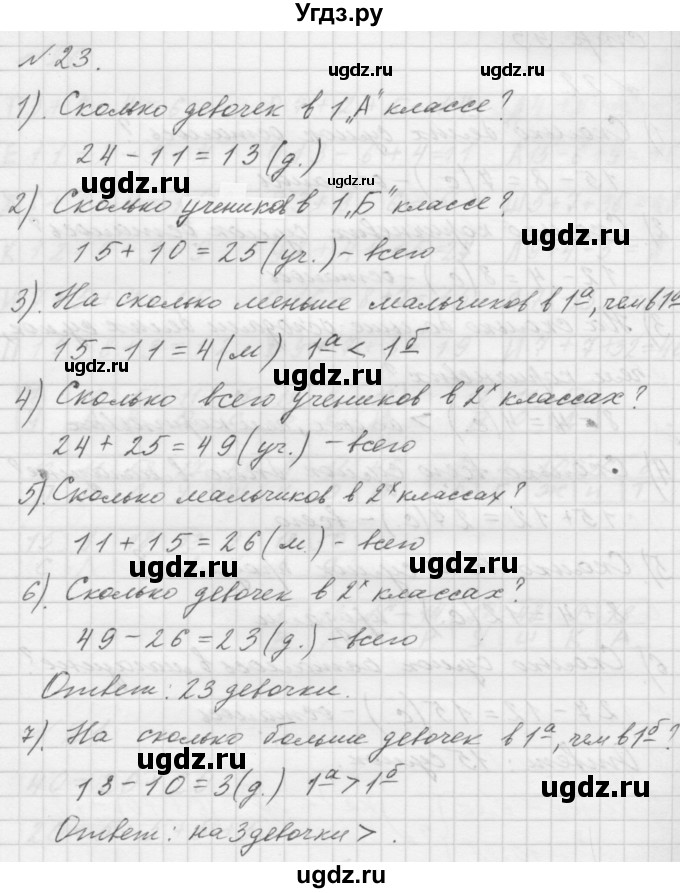 Угдз.ру
№ 23.
ugdz.ru
1). Сколько девочек в 1 „А" классе?
ugdz.ru
24 - 11 = 13 (д.)
ugdz.ru
ugdz.ru
2). Сколько учеников в 1 „Б" классе?
ugdz.ru
15 + 10 = 25 (уч.) - всего
3). На сколько меньше мальчиков в 1а, чем в 1а
15 - 11 = 4 (м) 1а < 1б
ugdz.ru
ugdz.ru
4) Сколько всего учеников в 2х классах?
24 + 25 = 49 (уч.) - всего
ugdz.ru
ugdz.ru
5). Сколько мальчиков в 2х классах?
11 + 15 = 26 (м.) - всего
ugdz.ru
6). Сколько девочек в 2х классах?
49 - 26 = 23 (д.) - всего
ugdz.ru
ugdz.ru
Ответ: 23 девочки.
7). На сколько больше девочек в 1а, чем в 1б?
ugdz.ru
13 - 10 = 3 (д.) 1а > 1б
ugdz.ru
Ответ: на 3 девочки > .
ugdz.ru
ugdz.ru